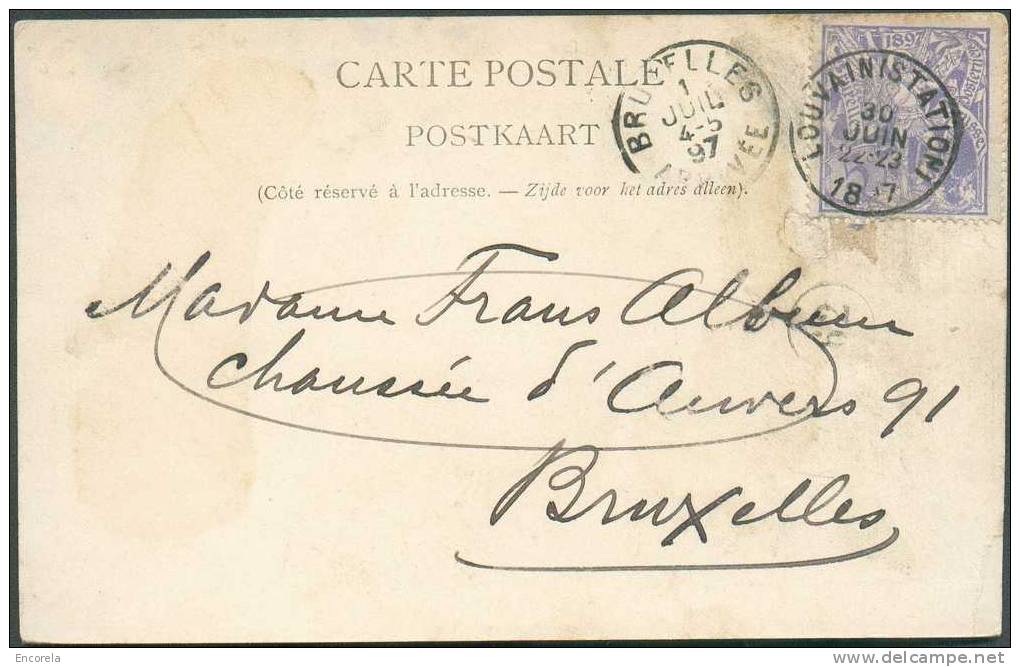 CARTE POSTALE
POSTKAART
(Côté réservé à l'adresse. — Zijde voor het adres alleen).
BRUXELLES
1
JUIL
4-5
97
ARRIVÉE
1897
LOUVAIN(STATION)
30
JUIN
22-23
1897
Madame Frans
Chaussée d'Anvers 91
Bruxelles
Encorela
www.delcampe.net